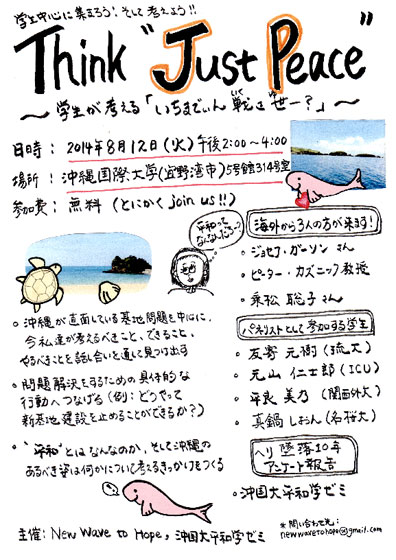 学生中心に集まろう！そして考えよう!!
Think "Just Peace"
～学生が考える「いちまでぃん 戦さ世ー？」～
いくさ ゆ
日時：2014年8月12日（火）午後2:00～4:00
場所：沖縄国際大学（宜野湾市）5号館314号室
参加費：無料（とにかく join us!!）
平和ってなんなんだろう～？
海外から3人の方が来ます！
・ジョセフ・ガーソン さん
・ピーター・カズニック教授
・乗松 聡子 さん
パネリストとして参加する学生
・友寄 元樹（琉大）
・元山 仁士郎（ICU）
・平良 美乃（関西外大）
・真鍋 しおん（名桜大）
ヘリ墜落10年
アンケート報告
・沖国大平和学ゼミ
○ 沖縄が直面している基地問題を中心に、
今私達が考えるべきこと、できること、
やるべきことを話し合いを通して見つけ出す
○ 問題解決をするための具体的な
行動へつなげる（例：どうやって
新基地建設を止めることができるか？）
○ “平和”とはなんなのか、そして沖縄の
あるべき姿は何かについて考えるきっかけをつくる
主催：New Wave to Hope，沖国大平和学ゼミ
＊問い合わせ先：
newwavetohope@gmail.com